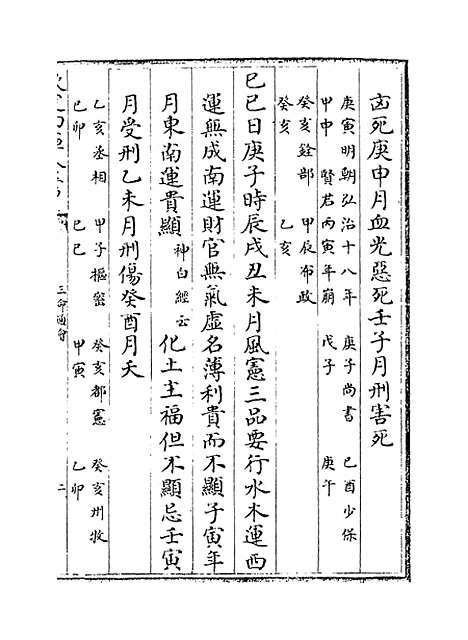 凶死庚申月血光惡死壬子月刑害死
庚寅明朝弘治十八年 庚子尚書 己酉少保
甲申 賢君丙寅年崩 戊子 庚午
癸亥銓部 甲辰布政
癸亥 乙亥
己巳日庚子時辰戌丑未月風憲三品要行水木運西
運無成南運財官無氣虛名薄利貴而不顯子寅年
月東南運貴顯 神白經云 化土主福但不顯忌壬寅
月受刑乙未月刑傷癸酉月夭
乙亥丞相 甲子樞密 癸亥都憲 癸亥州牧
己卯 己巳 甲寅 乙卯
三命通會 二